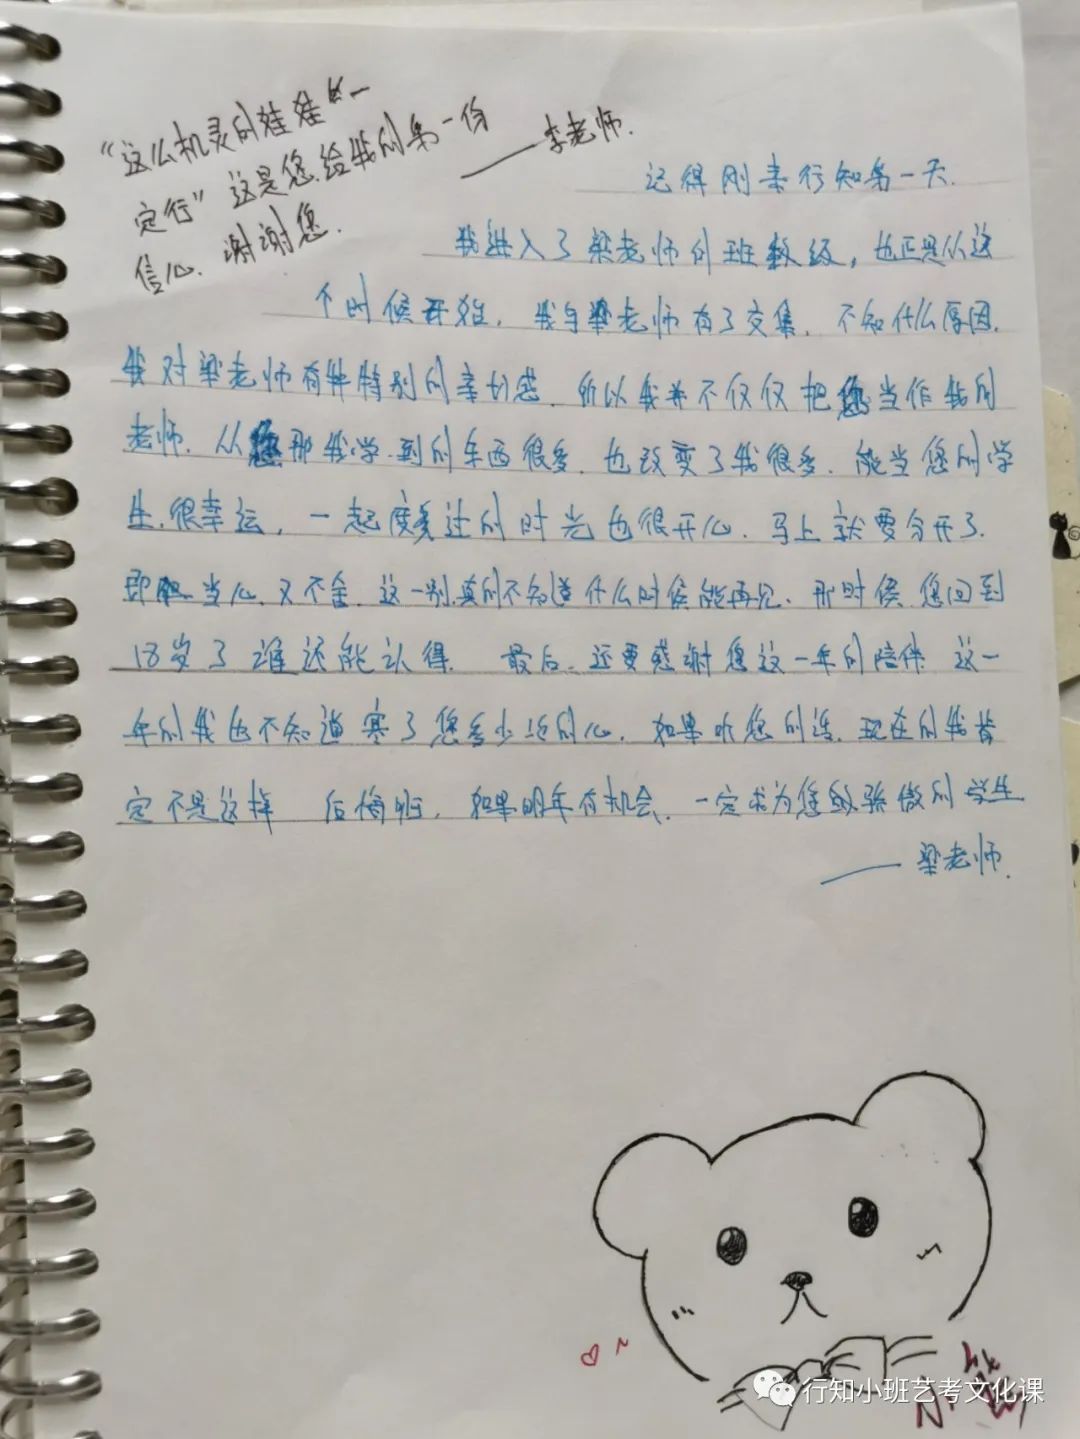 "这么机灵的娃娃"一
定行"这是您给我的第一份
信心.谢谢您.
——李老师.
记得刚来行知第一天.
我进入了梁老师的班级,也正是从这
个时候开始,我与梁老师有了交集.不知什么原因.
我对梁老师有种特别的亲切感.所以我并不仅仅把您当作我的
老师.从您那我学到的东西很多.也改变了我很多.能当您的学
生.很幸运,一起度过的时光也很开心.马上就要分开了.
即 当心.又不舍.这一别.真的不知道什么时候能再见.那时候.您回到
18岁了谁还能认得.最后.还要感谢您这一年的陪伴.这一
年的我也不知道寒了您多少次的心.如果听您的话.现在的我肯
定不是这样 后悔 .如果明年有机会.一定成为您的骄傲的学生
——梁老师.
行知小班艺考文化课